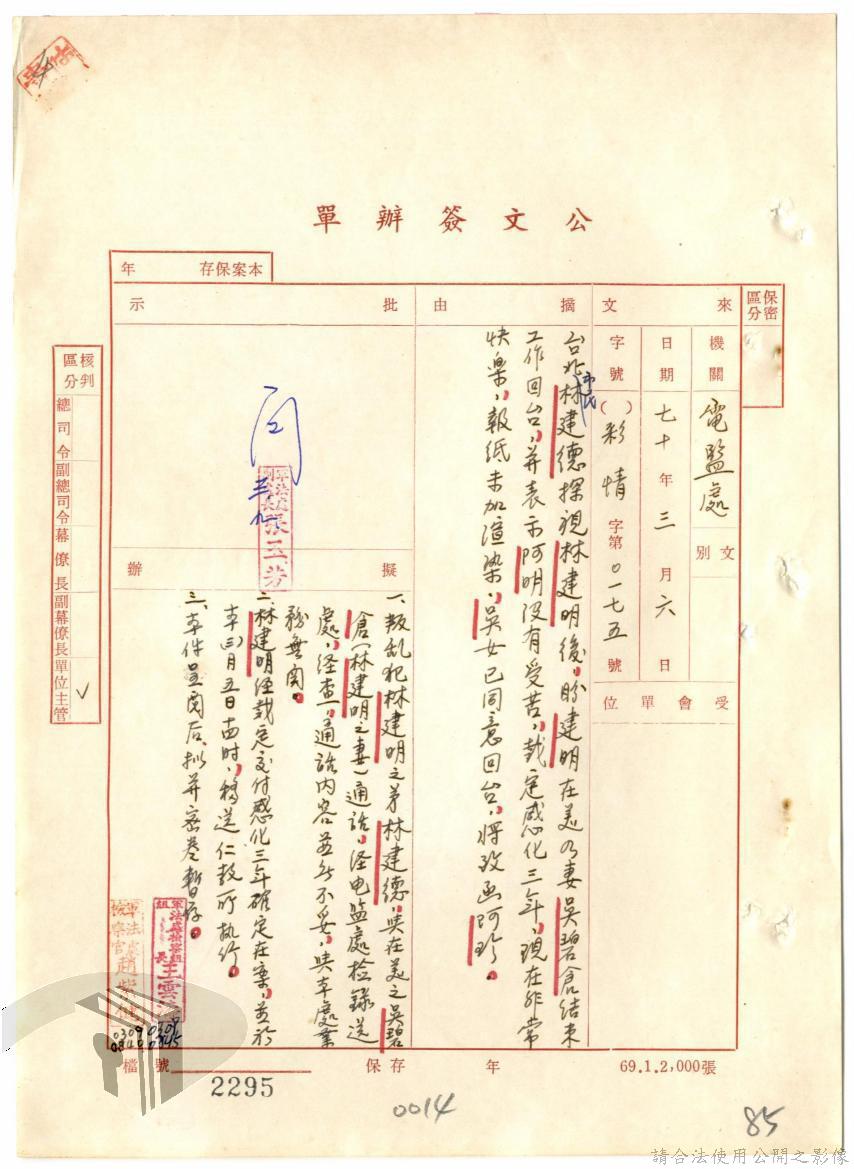 公文簽辦單
本案保存 年
保密區分
來文
機關 電監處
文別
日期 七十年三月六日
字號 ( )彩情字第0一七五號
受會單位
摘由
台北市民林建德探視林建明後,盼建明在美乃妻吳碧倉結束
工作回台,并表示阿明沒有受苦,裁定感化三年,現在非常
快樂,報紙未加渲染,吳女已同意回台,將致函阿珍。
批示
閱
三九
張玉芳
擬辦
一、叛乱犯林建明之弟林建德,與在美之吳碧
倉(林建明之妻)通話,經电監處检錄送
處,經查:通話內容並无不妥,與本處業
務無関。
二、林建明經裁定交付感化三年確定在案,並於
本(三)月五日十四時,移送仁教所执行。
三、本件呈閱后,拟并密卷暫存。
軍法處檢察組組長王雲
軍法處檢察官趙紫健
0309 0309
0840 0845
核判區分
總司令
副總司令
幕僚長
副幕僚長
單位主管 ✓
檔號
保存 年
69.1.2,000張
2295
0014
85
請合法使用公開之影像